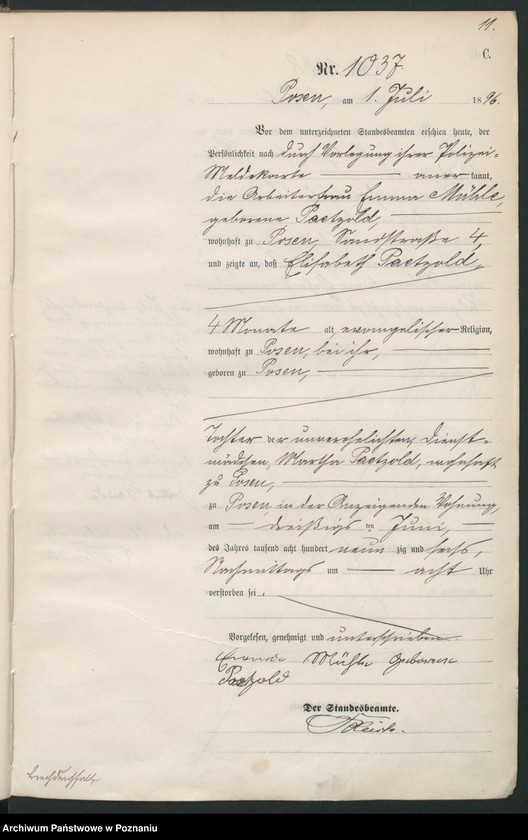 11.
C.
Nr. 1037
Posen, am 1. Juli 1896.
Vor dem unterzeichneten Standesbeamten erschien heute, der
Persönlichkeit nach durch Vorlegung ihrer Polizei-
Meldekarte anerkannt,
die Arbeiterfrau Emma Mühle,
geborene Paetzold,
wohnhaft zu Posen, Sandstraße 4,
und zeigte an, daß Elisabeth Paetzold,
4 Monate alt, evangelischer Religion,
wohnhaft zu Posen, bei ihr,
geboren zu Posen,
Tochter der unverehelichten Dienst-
mädchen, Martha Paetzold, wohnhaft
zu Posen,
zu Posen, in der Anzeigenden Wohnung,
am dreißigsten Juni,
des Jahres tausend acht hundert neunzig und sechs,
Nachmittags um acht Uhr
verstorben sei.
Vorgelesen, genehmigt und unterschrieben
Emma Mühle geborene
Paetzold
Der Standesbeamte.
Brechdurchfall
Archiwum Państwowe w Poznaniu